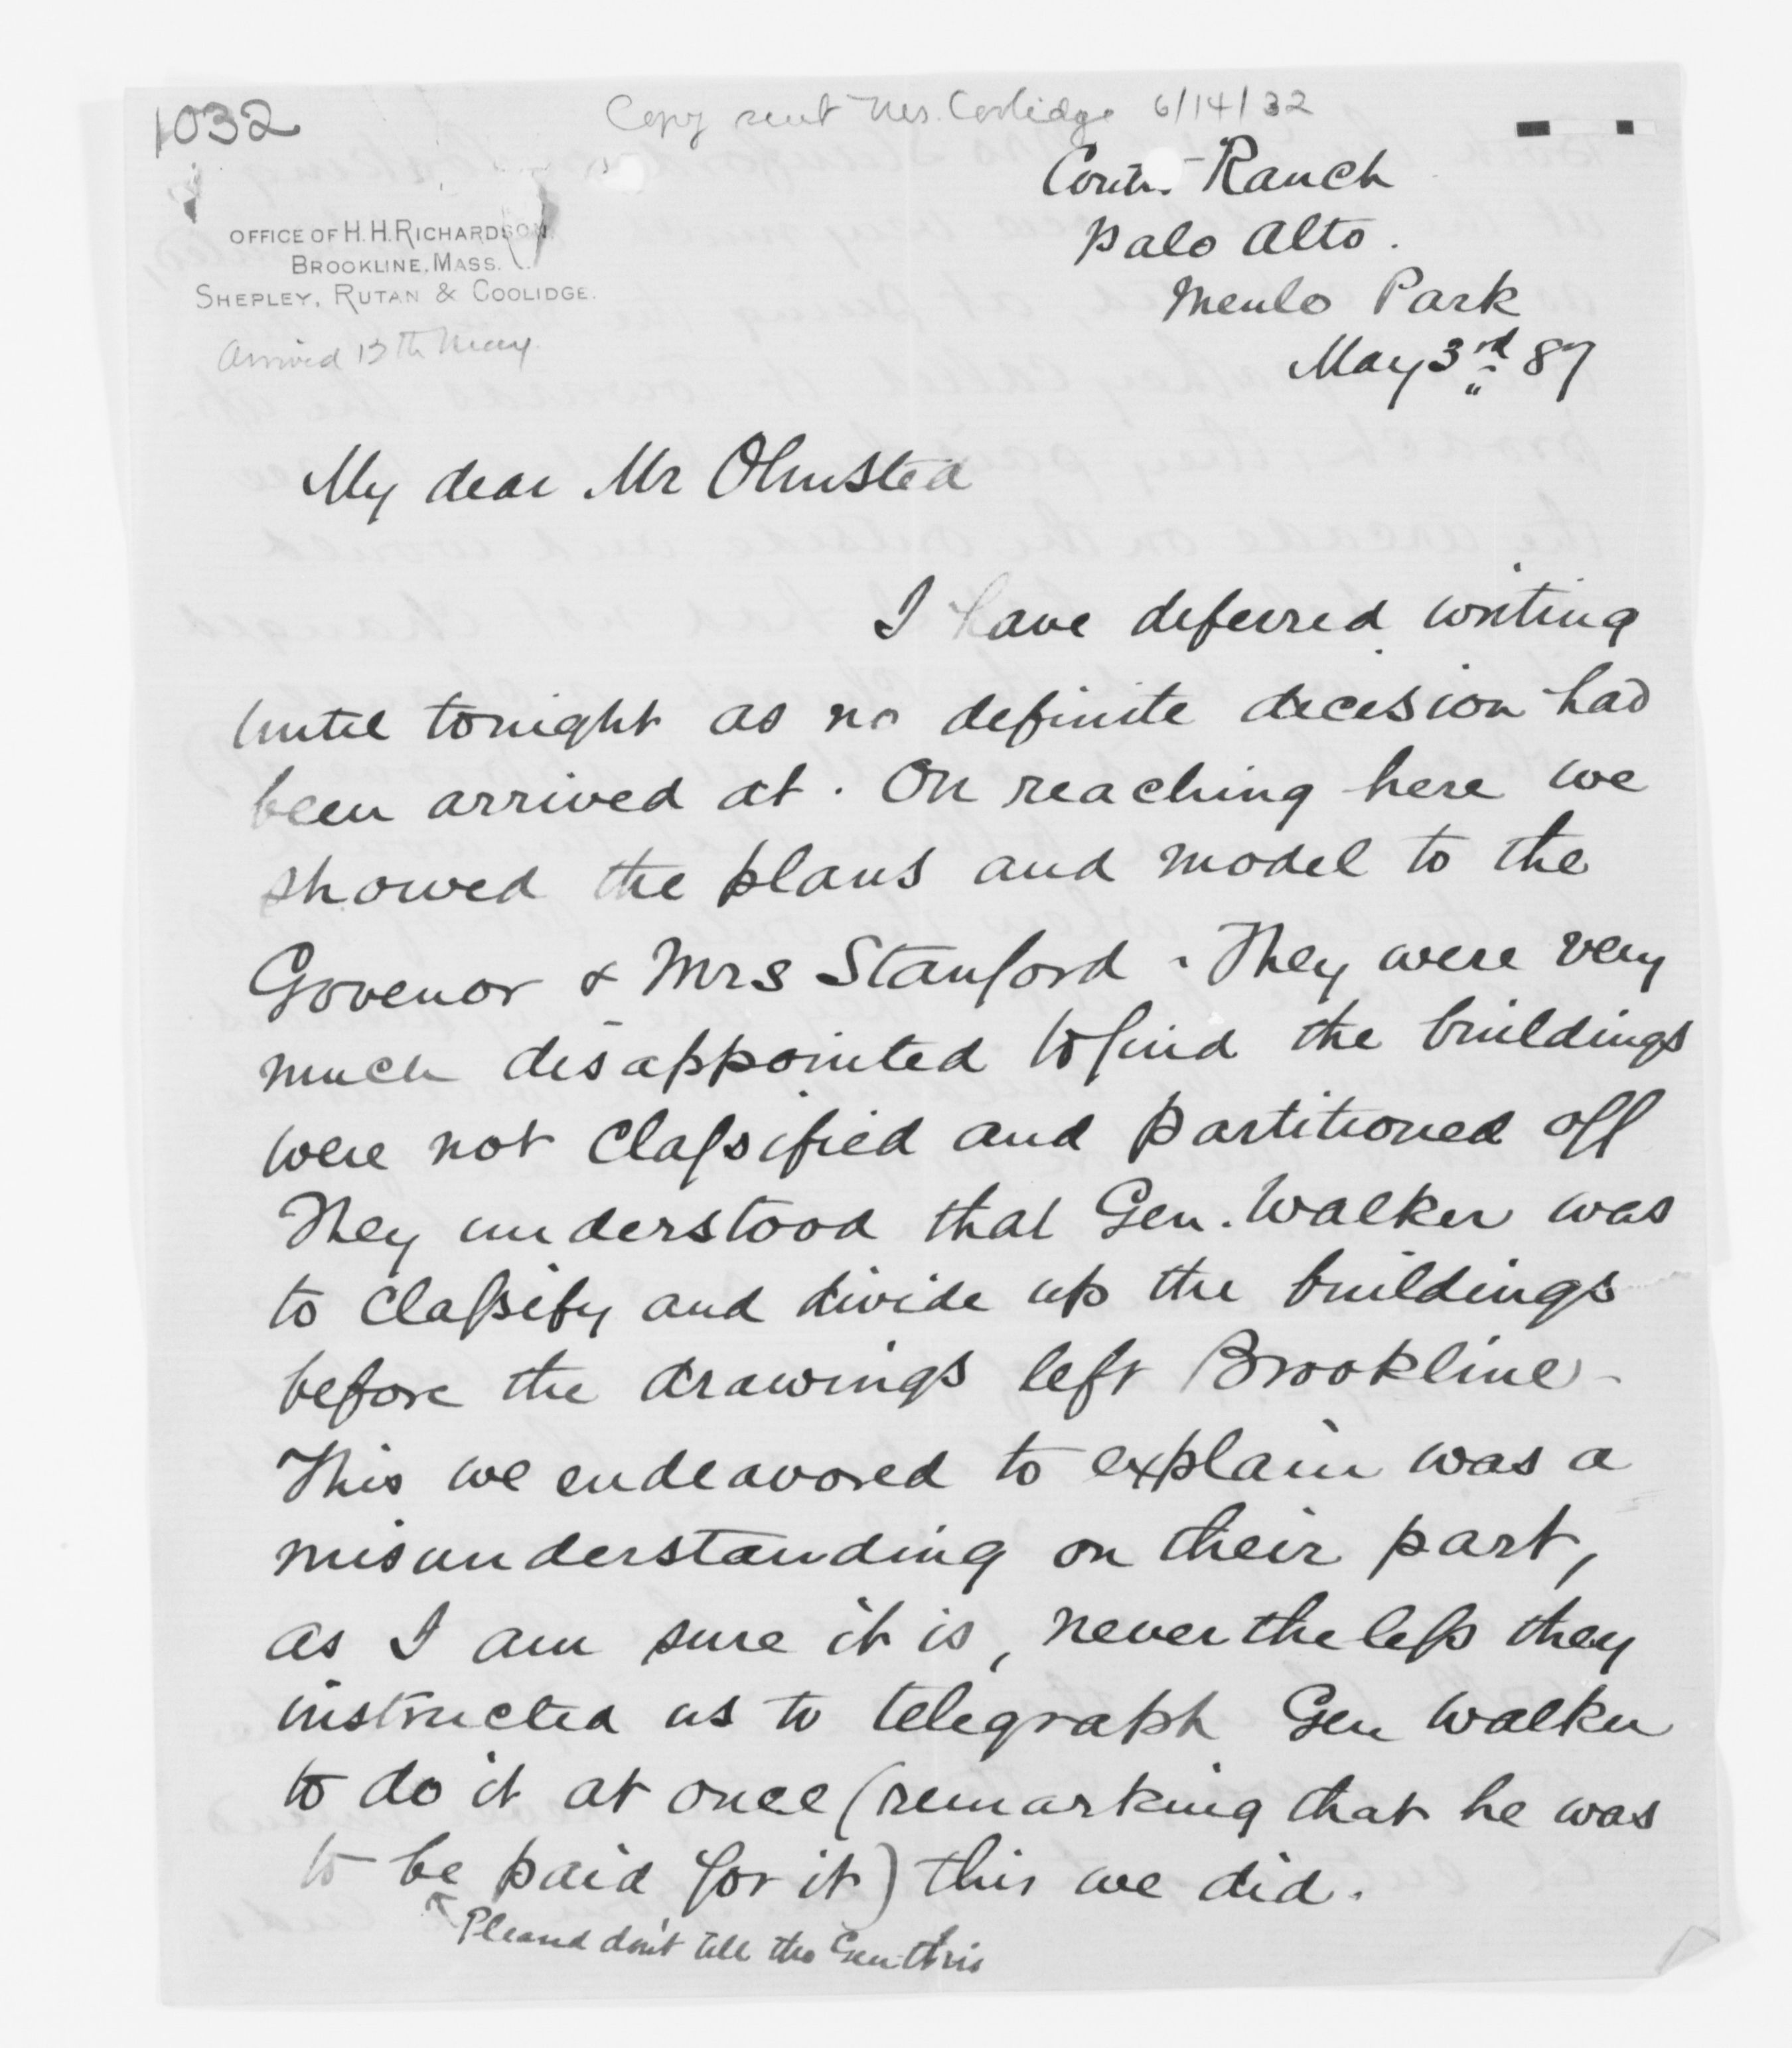 1032
Copy sent Mrs. Coolidge 6/14/32
Ranch
Palo Alto.
Menlo Park
May 3rd 87
OFFICE OF H. H. RICHARDSON,
BROOKLINE, MASS.
SHEPLEY, RUTAN & COOLIDGE.
Arrived 13th May.
My dear Mr Olmsted
I have deferred writing
until tonight as no definite decision had
been arrived at. On reaching here we
showed the plans and model to the
Govenor & Mrs Stanford. They were very
much disappointed to find the buildings
were not classified and partitioned off
They understood that Gen. Walker was
to classify and divide up the buildings
before the drawings left Brookline -
This we endeavored to explain was a
misunderstanding on their part,
as I am sure it is, nevertheless they
instructed us to telegraph Gen Walker
to do it at once (remarking that he was
to be paid for it) this we did.
don't tell the Gen this